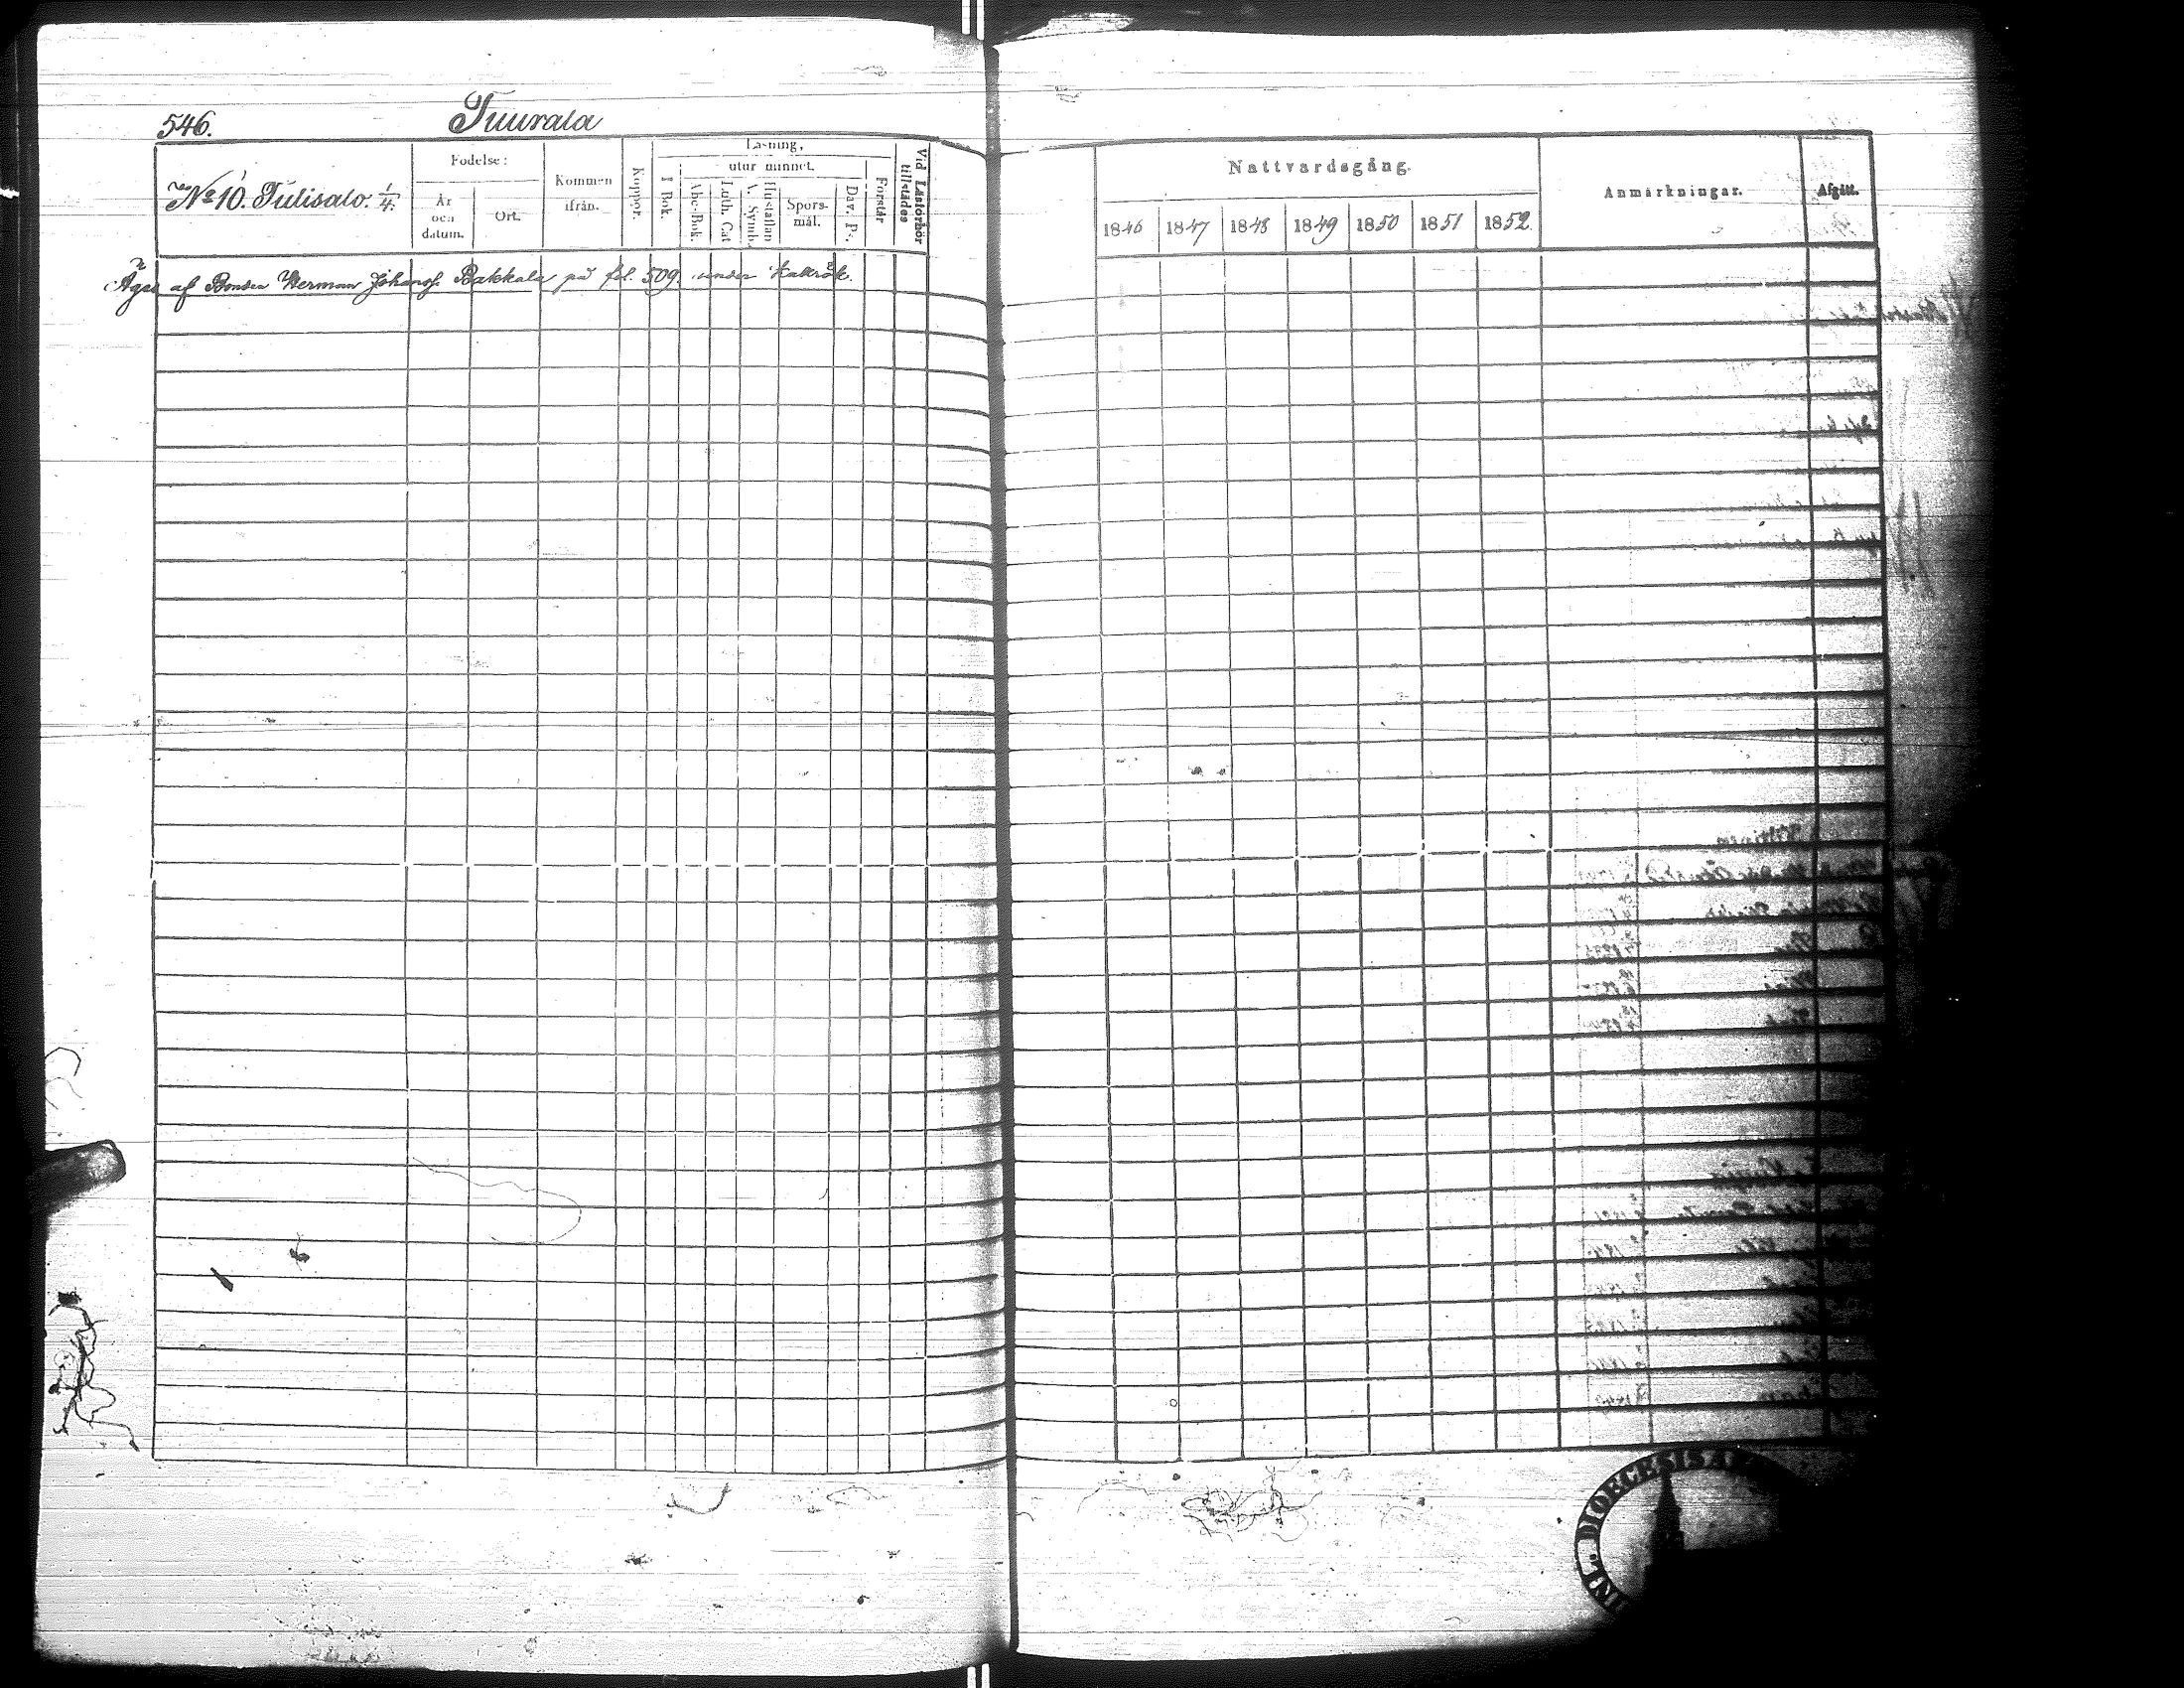 546.
Tuurala
No 10. Tulisalo. 1/4.
Födelse:
År och datum.
Ort.
Kommen ifrån.
Koppor.
Läsning,
I Bok.
utur minnet.
Abc-Bok.
Luth. Cat
A. Symb.
Hustaflan
Spörs-mål.
Dav. Ps.
Förstår
Vid Läsförhör tillstädes
Äges af Bonden Herman Johansf. Bakkala på fol. 509. under
Nattvardsgång.
1846
1847
1848
1849
1850
1851
1852
Anmärkningar.
Afgått.
DIOECESIS